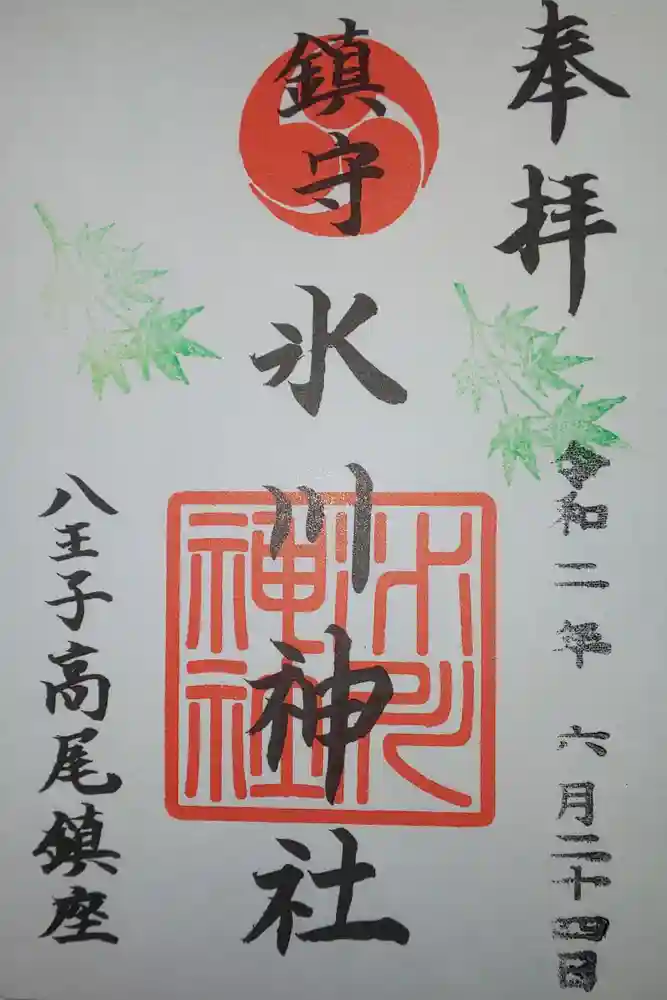 奉拝
令和二年 六月二十四日
鎮守
氷川神社
氷川神社
八王子高尾鎮座